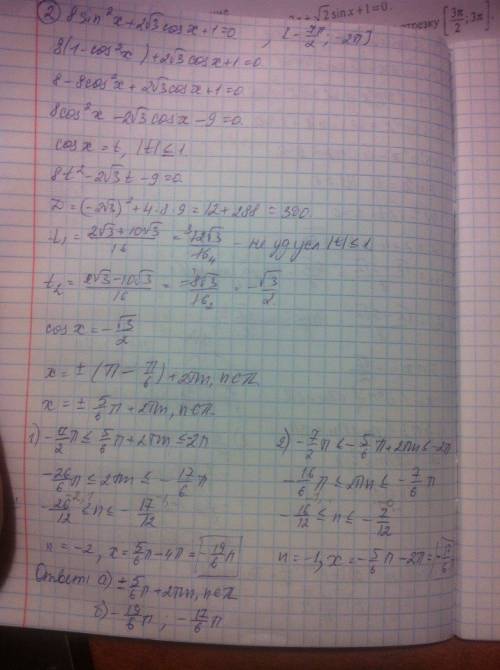 +√2 sinx+1=0.
отрезку [3π/2; 3π]
② 8sin²x+2√3cosx+1=0, [-7π/2; -2π].
8(1-cos²x)+2√3cosx+1=0.
8-8cos²x+2√3cosx+1=0.
8cos²x-2√3cosx-9=0.
cosx=t, |t|≤1.
8t²-2√3t-9=0.
D=(-2√3)²+4·8·9=12+288=300.
t₁=(2√3+10√3)/16=³12√3/16₄ - не уд. усл |t|≤1.
t₂=(2√3-10√3)/16=-8√3/16₂=-√3/2
cosx=-√3/2
x=±(π-π/6)+2πn, n∈Z.
x=±5/6π+2πn, n∈Z.
1) -7/2π≤5/6π+2πn≤-2π
-26/6π≤2πn≤-17/6π
-26/12≤n≤-17/12
n=-2, x=5/6π-4π=-19/6π
2) -7/2π≤-5/6π+2πn≤-2π
-16/6π≤2πn≤-7/6π
-16/12≤n≤-7/12
n=-1, x=-5/6π-2π=-17/6π
Ответ: а) ±5/6π+2πn, n∈Z
б) -19/6π; -17/6π